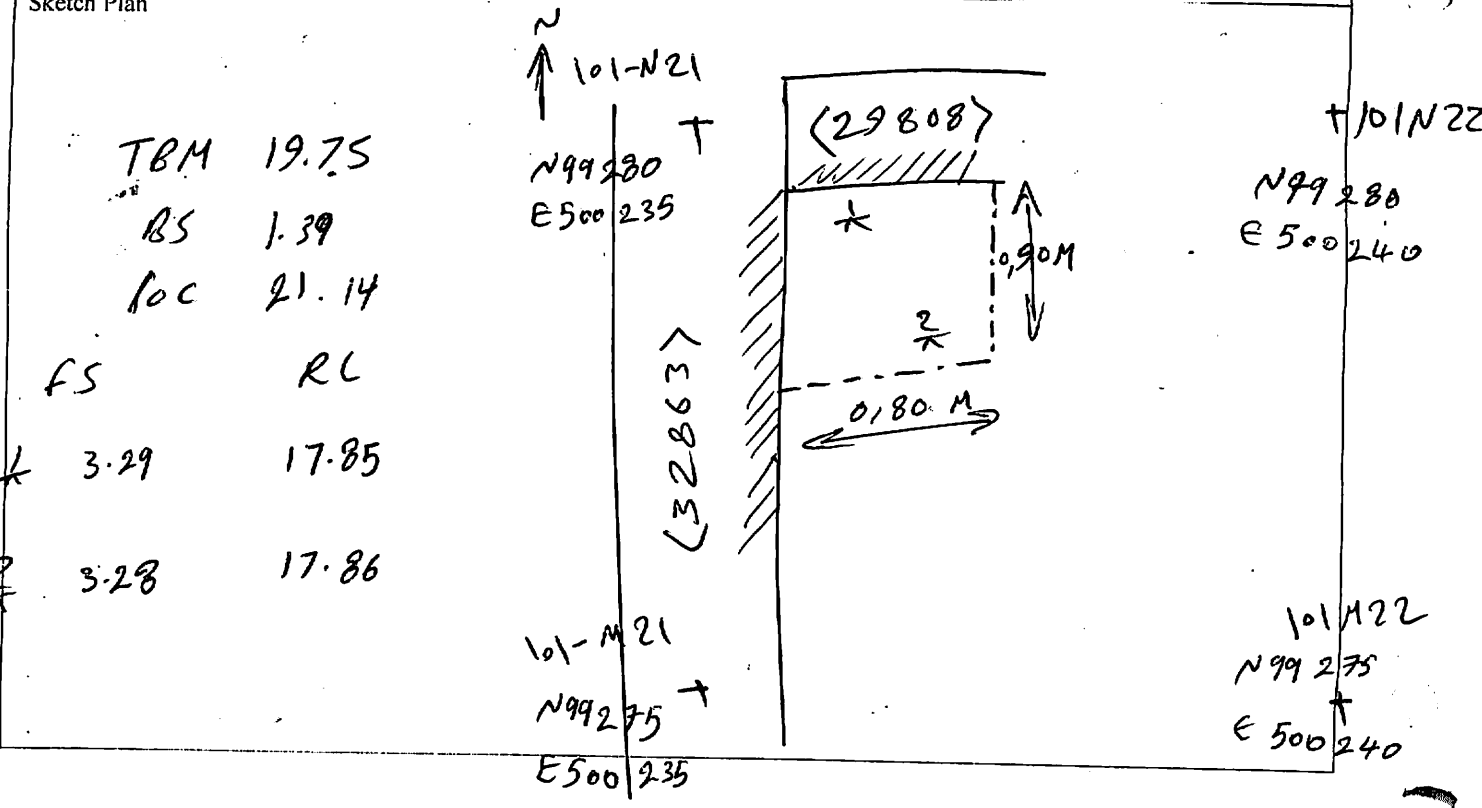 Sketch Plan
N
101-N21
TBM 19.75
BS 1.39
21.14
FS RL
1 3.29 17.85
2 3.28 17.86
N99280
E500 235
(29808)
1
0,90M
2
0,80 M
(32863)
101N22
N99 280
E 500 240
101-M21
N99275
E500 235
101M22
N99 275
E 500 240